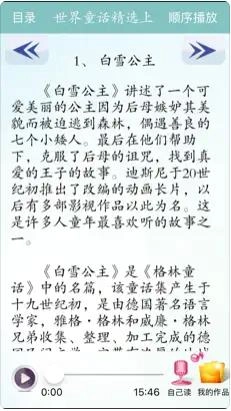 目录
世界童话精选上
顺序播放
1、 白雪公主
《白雪公主》讲述了一个可
爱美丽的公主因为后母嫉妒其美
貌而被迫逃到森林，偶遇善良的
七个小矮人。最后在他们帮助
下，克服了后母的诅咒，找到真
爱的王子的故事。迪斯尼于20世
纪初推出了改编的动画长片，以
后有多部影视作品以此为名。这
是许多人童年最喜欢听的故事之
一。
《白雪公主》是《格林童
话》中的名篇，该童话集产生于
十九世纪初，是由德国著名语言
学家，雅格·格林和威廉·格林
兄弟收集、整理、加工完成的德
0:00
15:46
自己读
我的作品